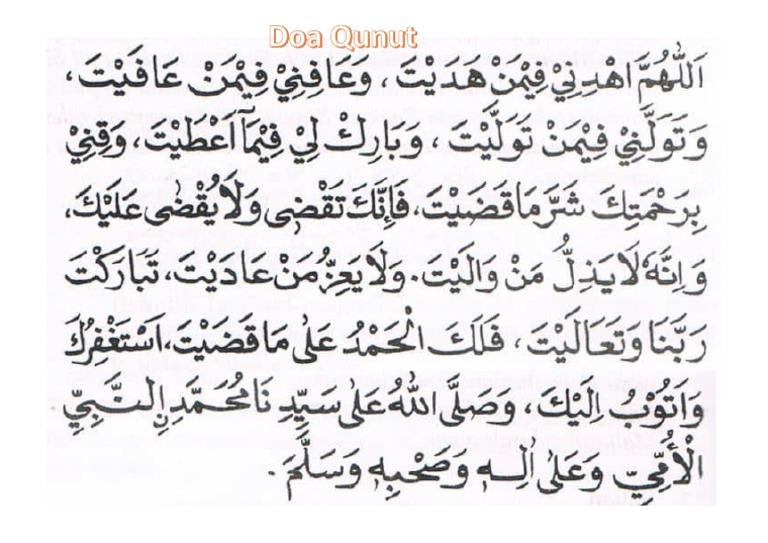 Doa Qunut
اَللّٰهُمَّ اهْدِنِيْ فِيْمَنْ هَدَيْتَ ، وَعَافِنِيْ فِيْمَنْ عَافَيْتَ ،
وَتَوَلَّنِيْ فِيْمَنْ تَوَلَّيْتَ ، وَبَارِكْ لِيْ فِيْمَآ اَعْطَيْتَ ، وَقِنِيْ
بِرَحْمَتِكَ شَرَّ مَا قَضَيْتَ ، فَإِنَّكَ تَقْضِى وَلَا يُقْضٰى عَلَيْكَ ،
وَاِنَّهُ لَا يَذِلُّ مَنْ وَالَيْتَ . وَلَا يَعِزُّ مَنْ عَادَيْتَ ، تَبَارَكْتَ
رَبَّنَا وَتَعَالَيْتَ ، فَلَكَ الْحَمْدُ عَلٰى مَا قَضَيْتَ ، اَسْتَغْفِرُكَ
وَاَتُوْبُ اِلَيْكَ ، وَصَلَّى اللّٰهُ عَلٰى سَيِّدِ نَا مُحَمَّدِ اِلنَّبِيِّ .
الْأُمِّيِّ وَعَلٰى اٰلِهِ وَصَحْبِهِ وَسَلَّمَ .